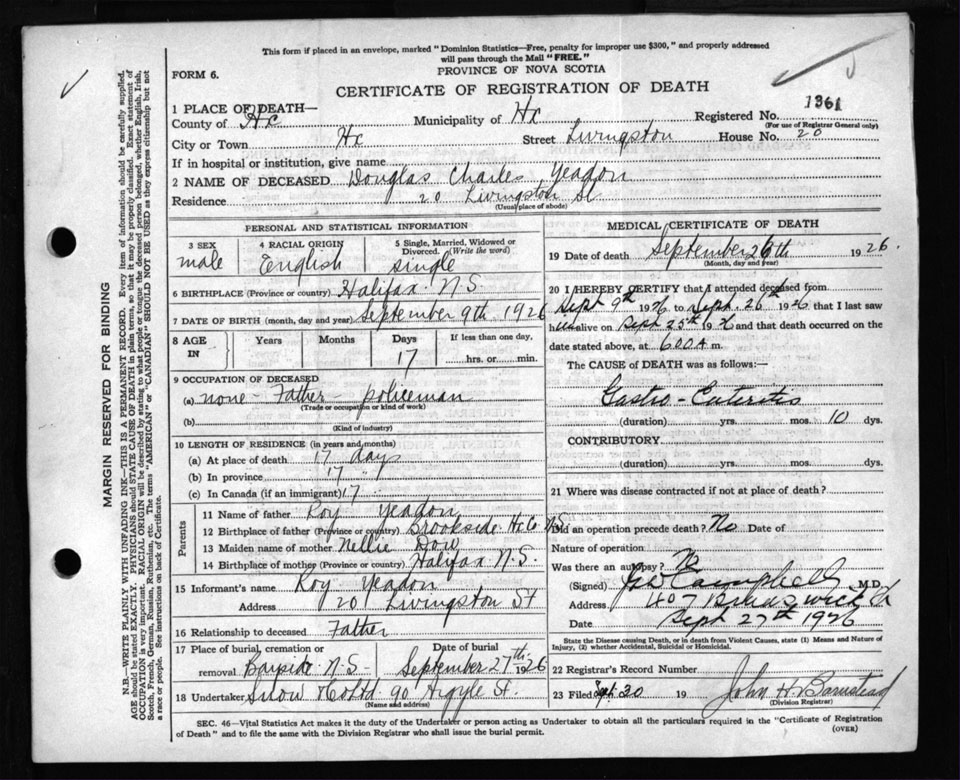 This form if placed in an envelope, marked "Dominion Statistics—Free, penalty for improper use $300," and properly addressed
will pass through the Mail "FREE."
PROVINCE OF NOVA SCOTIA
FORM 6.
CERTIFICATE OF REGISTRATION OF DEATH
1 PLACE OF DEATH—
County of Hx Municipality of Hx Registered No. 1361
(For use of Registrar General only)
City or Town Hx Street Livingston House No. 20
If in hospital or institution, give name
2 NAME OF DECEASED Douglas Charles Yeadon
Residence 20 Livingston St
(Usual place of abode)
PERSONAL AND STATISTICAL INFORMATION
3 SEX male
4 RACIAL ORIGIN English
5 Single, Married, Widowed or Divorced. (Write the word) single
6 BIRTHPLACE (Province or country) Halifax N.S
7 DATE OF BIRTH (month, day and year) September 9th 1926
8 AGE IN Years Months Days If less than one day,
17 hrs. or min.
9 OCCUPATION OF DECEASED
(a) none - Father - policeman
(Trade or occupation or kind of work)
(b)
(Kind of industry)
10 LENGTH OF RESIDENCE (in years and months)
(a) At place of death 17 days
(b) In province 17 "
(c) In Canada (if an immigrant) 17
Parents
11 Name of father Roy Yeadon
12 Birthplace of father (Province or country) Brookside Hx Co N.S
13 Maiden name of mother Nellie Dow
14 Birthplace of mother (Province or country) Halifax N.S
15 Informant's name Roy Yeadon
Address 20 Livingston St
16 Relationship to deceased Father
17 Place of burial, cremation or removal Bayside N.S- Date of burial September 27th 1926
18 Undertaker Snow & Co Ltd 90 Argyle St.
(Name and address)
MEDICAL CERTIFICATE OF DEATH
19 Date of death September 26th 1926.
(Month, day and year)
20 I HEREBY CERTIFY that I attended deceased from
Sept 9th 1926 to Sept. 26th 1926 that I last saw
him alive on Sept 25th 1926 and that death occurred on the
date stated above, at 6 00 A m.
The CAUSE OF DEATH was as follows:—
Gastro-Enteritis
(duration) yrs. mos. 10 dys.
CONTRIBUTORY
(duration) yrs. mos. dys.
21 Where was disease contracted if not at place of death?
Did an operation precede death? No Date of
Nature of operation
Was there an autopsy? No
(Signed) Campbell M.D.
Address 407 Brunswick St
Date Sept 27th 1926
State the Disease causing Death, or in death from Violent Causes, state (1) Means and Nature of
Injury, (2) whether Accidental, Suicidal or Homicidal.
22 Registrar's Record Number
23 Filed Sept. 30 19 John H. Barnstead
(Division Registrar)
SEC. 46—Vital Statistics Act makes it the duty of the Undertaker or person acting as Undertaker to obtain all the particulars required in the "Certificate of Registration
of Death" and to file the same with the Division Registrar who shall issue the burial permit.
(OVER)
MARGIN RESERVED FOR BINDING
N.B.—WRITE PLAINLY WITH UNFADING INK—THIS IS A PERMANENT RECORD. Every item of information should be carefully supplied.
AGE should be stated EXACTLY. PHYSICIANS should STATE CAUSE OF DEATH in plain terms, so that it may be properly classified. Exact statement of
OCCUPATION is very important. RACIAL ORIGIN will be described by stating to what people or tongue the deceased person belonged, whether English, Irish,
Scotch, French, German, Russian, Ruthenian, etc. The terms "AMERICAN" or "CANADIAN" SHOULD NOT BE USED as they express citizenship but not
a race or people. See instructions on back of Certificate.